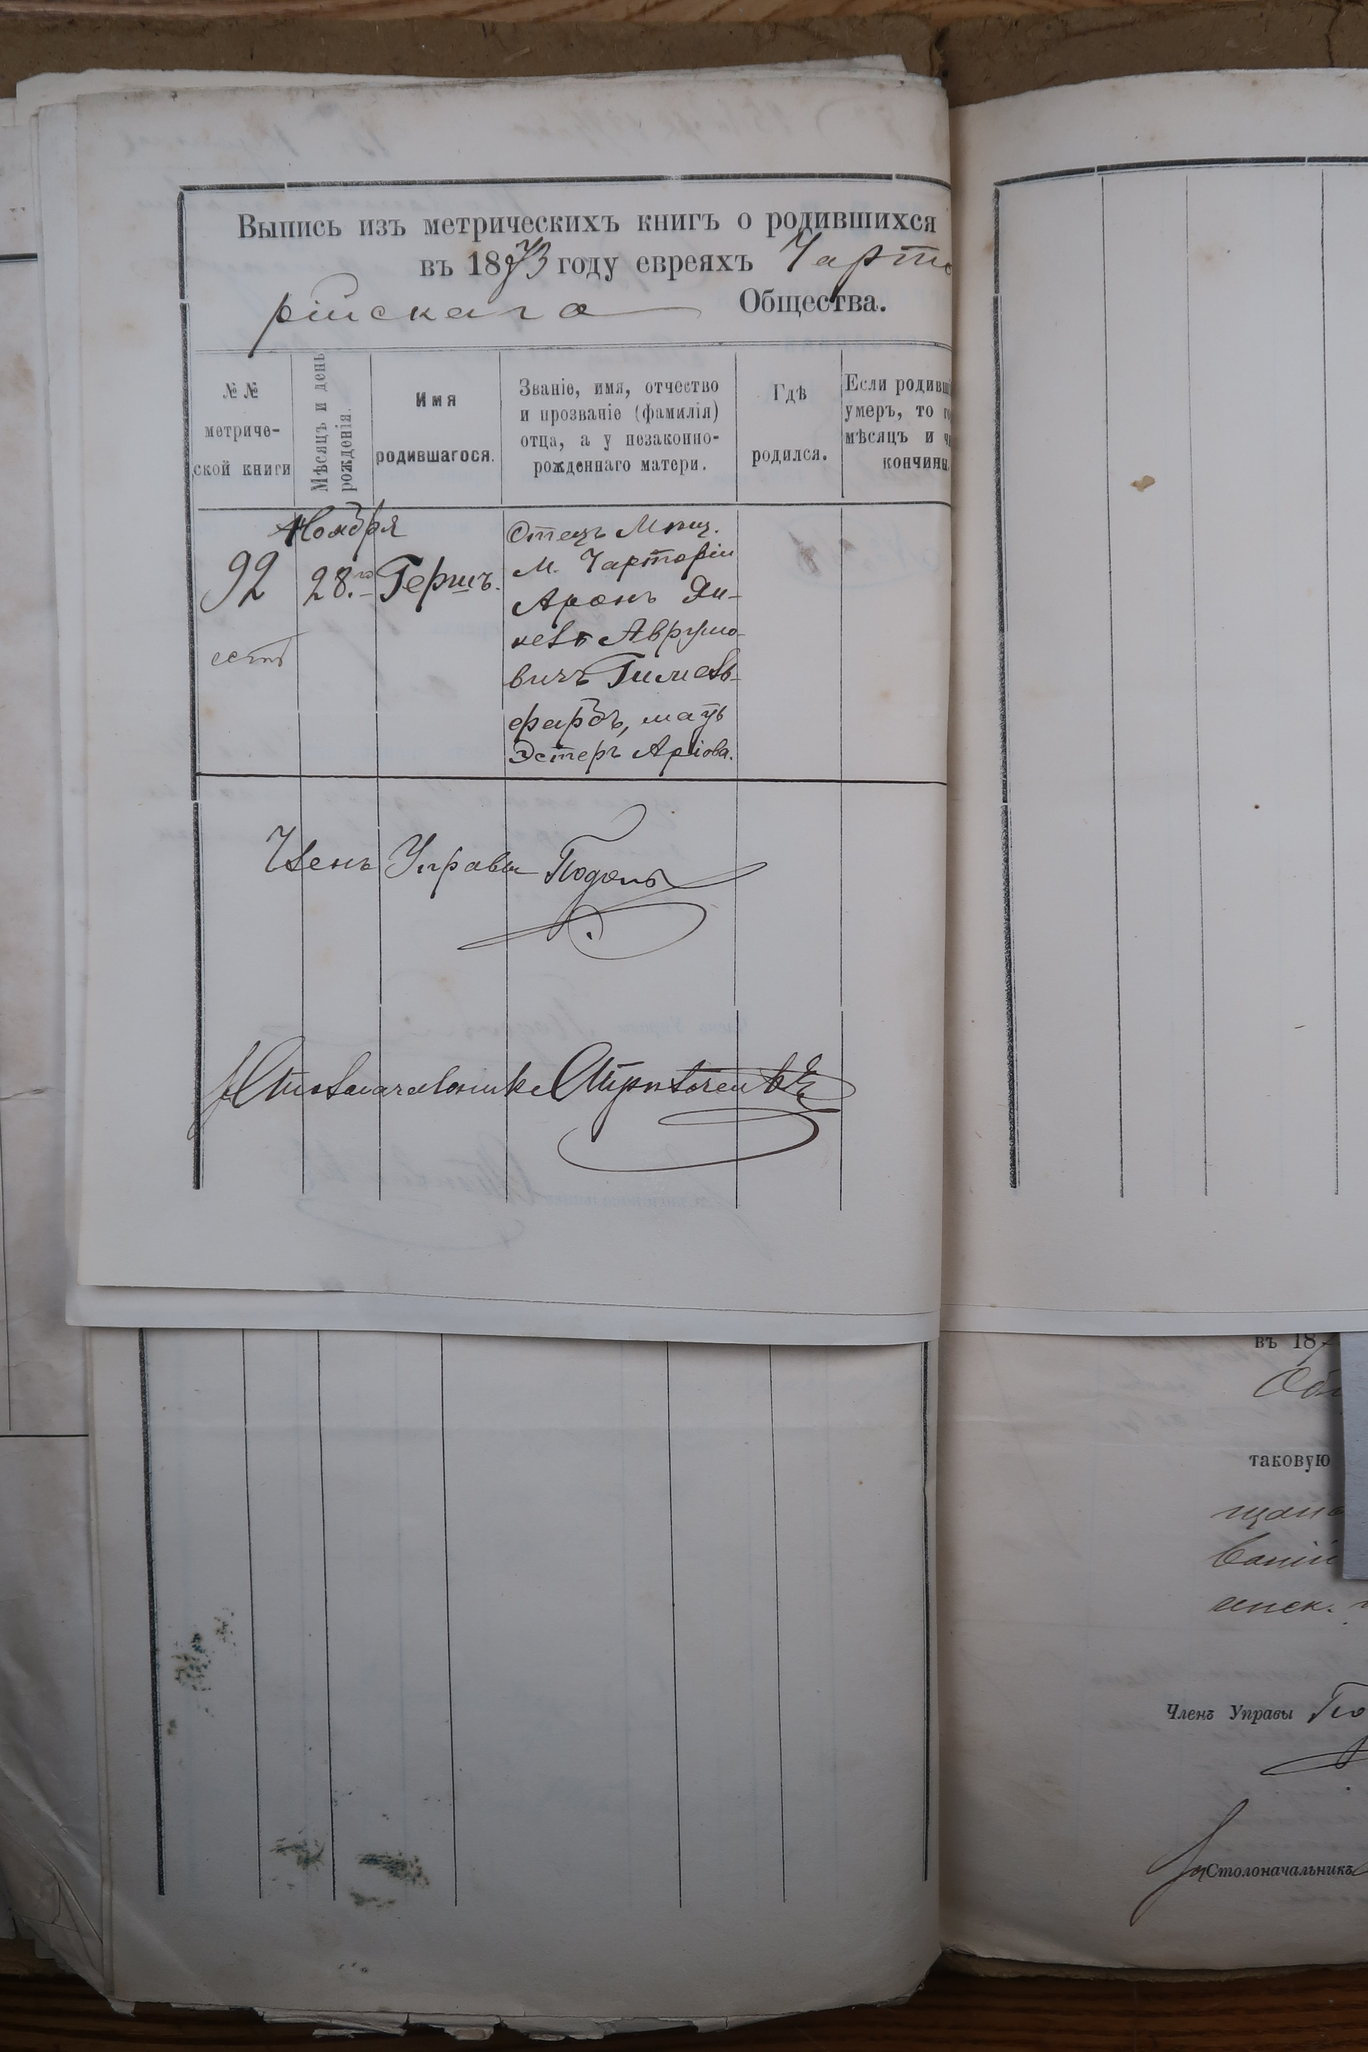 Выпись изъ метрическихъ книгъ о родившихся
въ 1873 году евреяхъ Чарто
рійскаго Общества.
№ №
метриче-
ской книги
Мѣсяцъ и день
рожденія.
Имя
родившагося.
Званіе, имя, отчество
и прозваніе (фамилія)
отца, а у незаконно-
рожденнаго матери.
Гдѣ
родился.
Если родивш
умеръ, то го
мѣсяцъ и чи
кончины.
Ноября
92
28.го
Гершъ.
Отецъ Мѣщ.
М. Чарторіи
Аронъ Ян-
кель Аврумо-
вичъ Гимель-
фарбъ, мать
Эстеръ Аріова.
есть
Членъ Управы Подоль
Столоначальникъ
въ 187
Общ
таковую
Членъ Управы По
Столоначальникъ